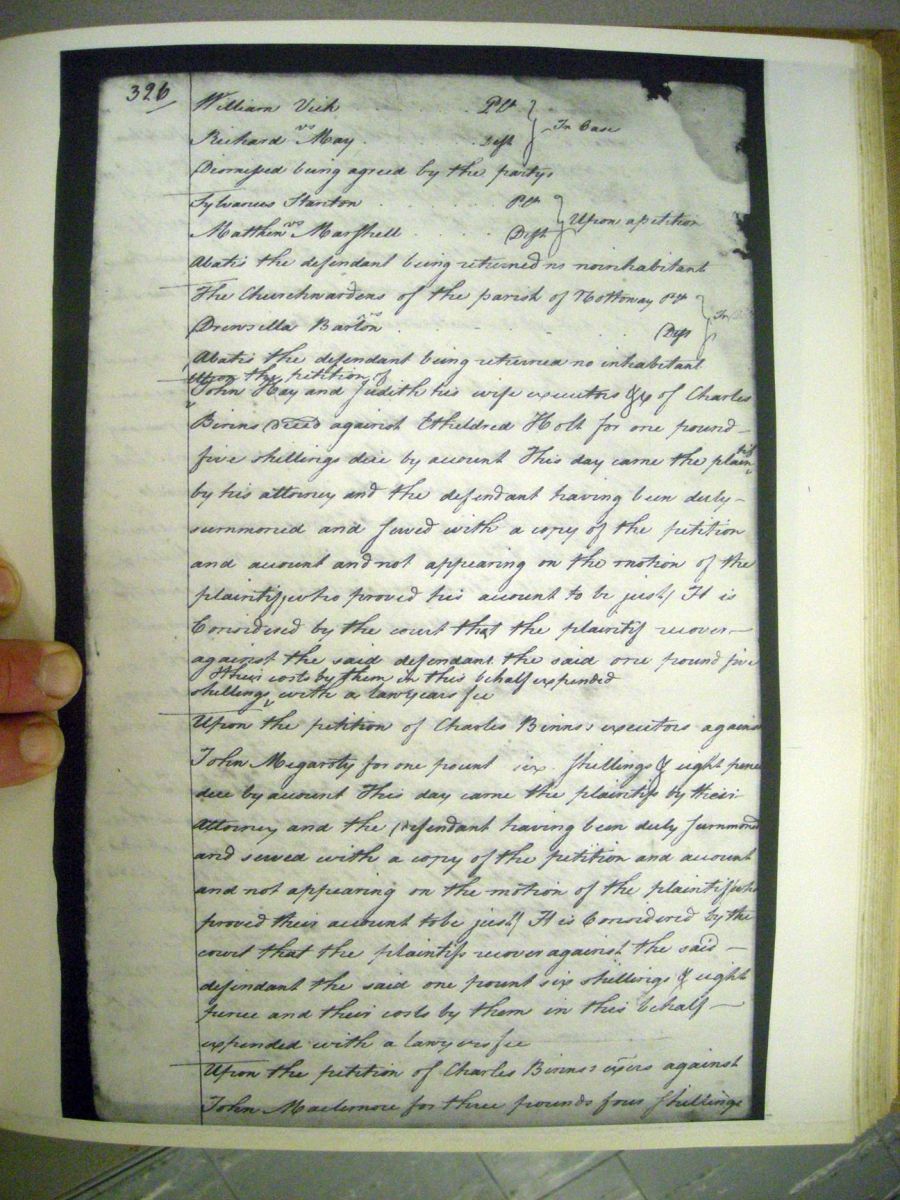 326
William Vick . . Plt } In Case
vs
Richard May . . Deft
Dismissed being agreed by the partys
Sylvanus Stanton . . . . Plt } Upon a petition
vs
Matthew Marshell . . . . Deft
Abates the defendant being returned no noinhabitant
The Churchwardens of the parish of Nottoway Plt } In
vs
Drewsilla Barton . . Deft
Abates the defendant being returned no inhabitant
Upon the petition of
John Hay and Judith his wife executors &x of Charles
Binns Deced against Etheldred Holt for one pound
five shillings due by account This day came the plaintif
by his attorney and the defendant having been duly
summoned and served with a copy of the petition
and account and not appearing on the motion of the
plaintif, who proved his account to be just/ It is
Considered by the court that the plaintif recover
against the said defendant the said one pound five
& their costs by them in this behalf expended
shillings, with a lawyears fee
Upon the petition of Charles Binns: executors against
John Megaroty for one pount six shillings & eight pence
due by account This day came the plaintifs by their
Attorney and the Defendant having been duly summoned
and served with a copy of the petition and account
and not appearing on the motion of the plaintifs who
proved their account to be just/ It is Considered by the
court that the plaintifs recover against the said
defendant the said one pount six shillings & eight
pence and their costs by them in this behalf
expended with a lawyers fee
Upon the petition of Charles Binns: exers against
John Maclemore for three pounds four shillings